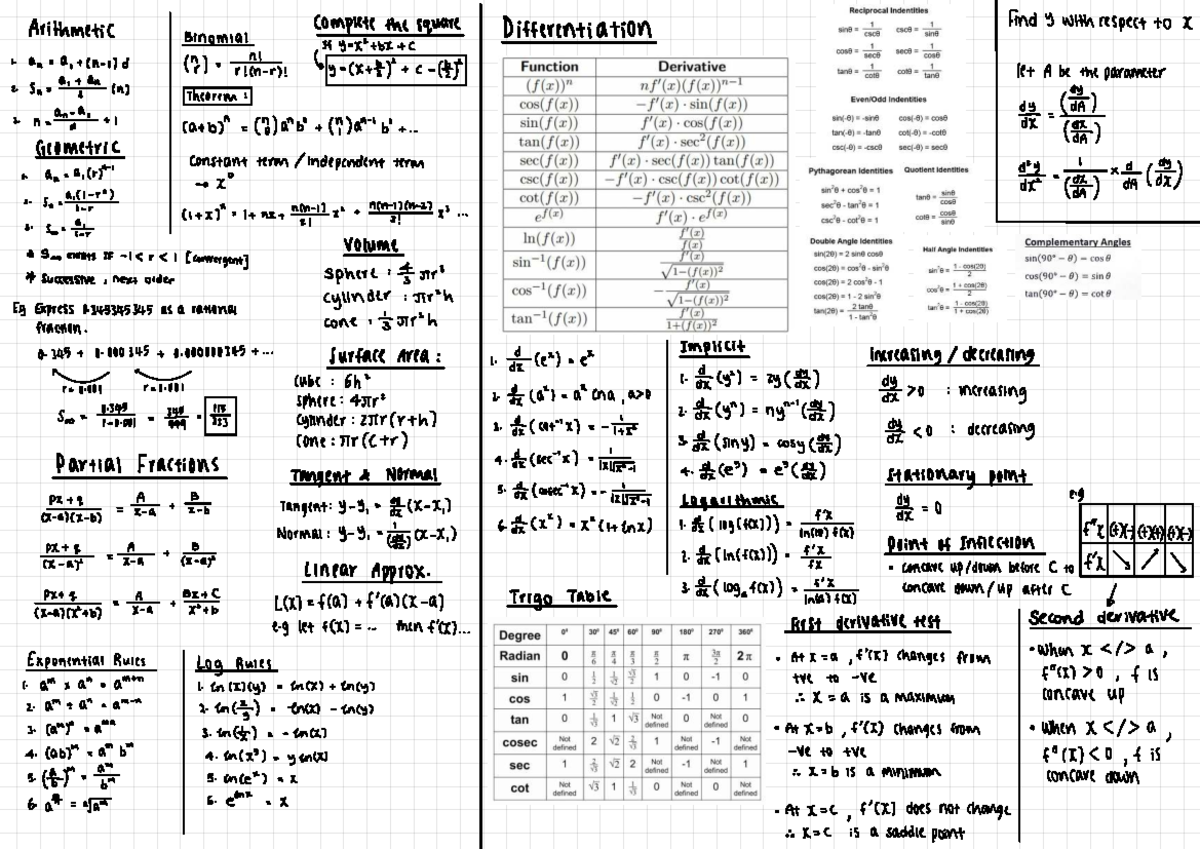 Arithmetic
1. aₙ = a₁ + (n-1) d
2. Sₙ = (a₁ + aₙ)/2 (n)
3. n = (aₙ - a₁)/d + 1
Geometric
1. aₙ = a₁ (r)ⁿ⁻¹
2. Sₙ = a₁(1-rⁿ)/(1-r)
3. S∞ = a₁/(1-r)
* S∞ exists if -1 < r < 1 [convergent]
* Successive , next order
Eg Express 0.345345345 as a rational
fraction.
0.345 + 0.000345 + 0.000000345 + ...
r = 0.001 r = 0.001
S∞ = 0.345/(1-0.001) = 345/999 = 115/333
Partial Fractions
(px + q)/((x-a)(x-b)) = A/(x-a) + B/(x-b)
(px + q)/(x-a)² = A/(x-a) + B/(x-a)²
(px + q)/((x-a)(x²+b)) = A/(x-a) + (Bx + C)/(x²+b)
Exponential Rules
1. aᵐ x aⁿ = aᵐ⁺ⁿ
2. aᵐ ÷ aⁿ = aᵐ⁻ⁿ
3. (aᵐ)ⁿ = aᵐⁿ
4. (ab)ᵐ = aᵐ bᵐ
5. (a/b)ᵐ = aᵐ/bᵐ
Binomial
(n r) = n!/(r!(n-r)!)
Theorem :
(a+b)ⁿ = (n 0) aⁿ b⁰ + (n 1) aⁿ⁻¹ b¹ + ...
Constant term / Independent term
→ x⁰
(1+x)ⁿ = 1 + nx + n(n-1)/2! x² + n(n-1)(n-2)/3! x³ ...
Complete the square
If y = x² + bx + c
y = (x + b/2)² + c - (b/2)²
Volume
Sphere : 4/3 πr³
Cylinder : πr²h
Cone : 1/3 πr²h
Surface Area :
Cube : 6h²
Sphere : 4πr²
Cylinder : 2πr(r+h)
Cone : πr(l+r)
Tangent & Normal
Tangent: y - y₁ = dy/dx (x - x₁)
Normal: y - y₁ = 1/(dy/dx) (x - x₁)
Linear Approx.
L(x) = f(a) + f'(a)(x-a)
e.g let f(x) = ... then f'(x)...
Log Rules
1. ln(x)(y) = ln(x) + ln(y)
2. ln(x/y) = ln(x) - ln(y)
3. ln(1/x) = - ln(x)
4. ln(xʸ) = y ln(x)
5. ln(eˣ) = x
6. e^(ln x) = x
Differentiation
Function Derivative
(f(x))ⁿ nf'(x)(f(x))ⁿ⁻¹
cos(f(x)) -f'(x) · sin(f(x))
sin(f(x)) f'(x) · cos(f(x))
tan(f(x)) f'(x) · sec²(f(x))
sec(f(x)) f'(x) · sec(f(x)) tan(f(x))
csc(f(x)) -f'(x) · csc(f(x)) cot(f(x))
cot(f(x)) -f'(x) · csc²(f(x))
e^f(x) f'(x) · e^f(x)
ln(f(x)) f'(x)/f(x)
sin⁻¹(f(x)) f'(x)/√(1-(f(x))²)
cos⁻¹(f(x)) -f'(x)/√(1-(f(x))²)
tan⁻¹(f(x)) f'(x)/(1+(f(x))²)
Reciprocal Indentities
sinθ = 1/cscθ cscθ = 1/sinθ
cosθ = 1/secθ secθ = 1/cosθ
tanθ = 1/cotθ cotθ = 1/tanθ
Even/Odd Indentities
sin(-θ) = -sinθ cos(-θ) = cosθ
tan(-θ) = -tanθ cot(-θ) = -cotθ
csc(-θ) = -cscθ sec(-θ) = secθ
Pythagorean Identities Quotient Identities
sin²θ + cos²θ = 1
sec²θ - tan²θ = 1
csc²θ - cot²θ = 1
tanθ = sinθ/cosθ
cotθ = cosθ/sinθ
Double Angle Identities
sin(2θ) = 2 sinθ cosθ
cos(2θ) = cos²θ - sin²θ
cos(2θ) = 2 cos²θ - 1
cos(2θ) = 1 - 2 sin²θ
tan(2θ) = 2 tanθ/(1 - tan²θ)
Half Angle Indentities
sin²θ = (1 - cos(2θ))/2
cos²θ = (1 + cos(2θ))/2
tan²θ = (1 - cos(2θ))/(1 + cos(2θ))
Complementary Angles
sin(90° − θ) = cos θ
cos(90° − θ) = sin θ
tan(90° − θ) = cot θ
Find y with respect to x
let A be the parameter
dy/dx = (dy/dA)/(dx/dA)
d²y/dx² = 1/(dx/dA) × d/dA (dy/dx)
1. d/dx (eˣ) = eˣ
2. d/dx (aˣ) = aˣ ln a , a>0
3. d/dx (cot⁻¹x) = - 1/(1+x²)
4. d/dx (sec⁻¹x) = 1/(|x|√(x²-1))
5. d/dx (cosec⁻¹x) = - 1/(|x|√(x²-1))
6. d/dx (xˣ) = xˣ (1 + ln x)
Implicit
1. d/dx (y²) = 2y (dy/dx)
2. d/dx (yⁿ) = nyⁿ⁻¹ (dy/dx)
3. d/dx (sin y) = cos y (dy/dx)
4. d/dx (eʸ) = eʸ (dy/dx)
Logarithmic
1. d/dx (log(f(x))) = f'x/(ln(10) f(x))
2. d/dx (ln(f(x))) = f'x/fx
3. d/dx (logₐ f(x)) = f'x/(ln(a) f(x))
Increasing / decreasing
dy/dx > 0 : increasing
dy/dx < 0 : decreasing
Stationary point
dy/dx = 0
Point of Inflection
• concave up/down before C to
concave down/up after C
e.g
f''x
f'x
Trigo Table
Degree 0° 30° 45° 60° 90° 180° 270° 360°
Radian 0 π/6 π/4 π/3 π/2 π 3π/2 2π
sin 0 1/2 1/√2 √3/2 1 0 -1 0
cos 1 √3/2 1/√2 1/2 0 -1 0 1
tan 0 1/√3 1 √3 Not defined 0 Not defined 0
cosec Not defined 2 √2 2/√3 1 Not defined -1 Not defined
sec 1 2/√3 √2 2 Not defined -1 Not defined 1
cot Not defined √3 1 1/√3 0 Not defined 0 Not defined
First derivative test
• At x = a , f'(x) changes from
+ve to -ve
∴ x = a is a maximum
• At x = b , f'(x) changes from
-ve to +ve
∴ x = b is a minimum
• At x = c , f'(x) does not change
∴ x = c is a saddle point
Second derivative
• When x </> a ,
f''(x) > 0 , f is
concave up
• When x </> a ,
f''(x) < 0 , f is
concave down